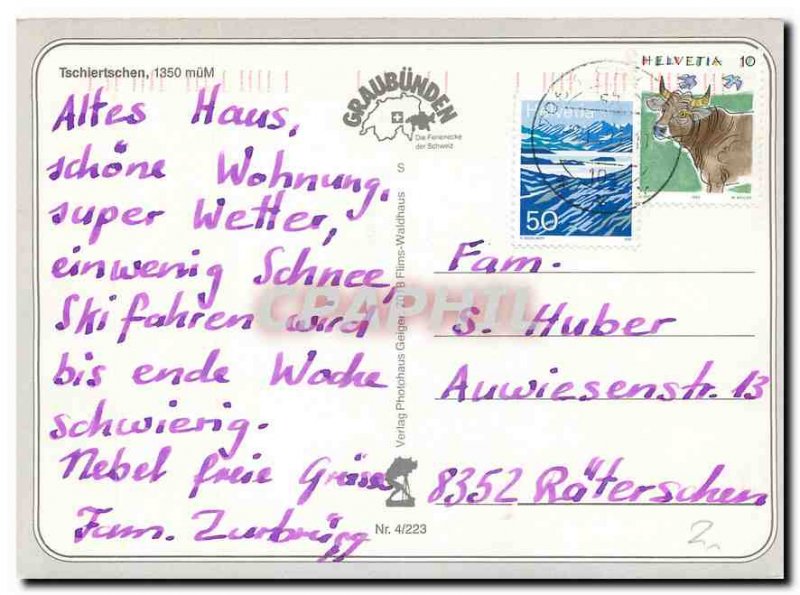 Tschiertschen, 1350 müM
Altes Haus,
schöne Wohnung,
super Wetter,
einwenig Schnee,
Ski fahren wird
bis ende Woche
schwierig.
Nebel freie Grüsse
Fam. Zurbrügg
GRAUBÜNDEN
Die Ferienecke
der Schweiz
S
Verlag Photohaus Geiger 7018 Flims-Waldhaus
Nr. 4/223
Helvetia
50
HELVETIA 10
Fam.
S. Huber
Auwiesenstr. 13
8352 Räterschen
CPAPHIL